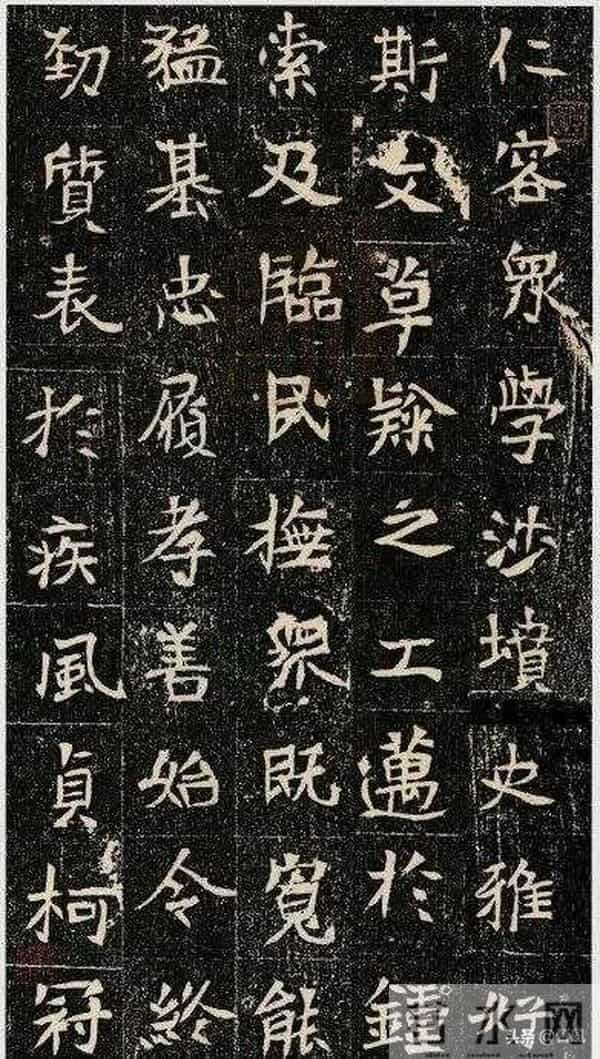 仁容眾學涉墳史雅好
斯文草隸之工邁於鍾
索及臨民撫眾既寬能
猛基忠履孝善始令終
勁質表於疾風貞柯冠
水网
头条